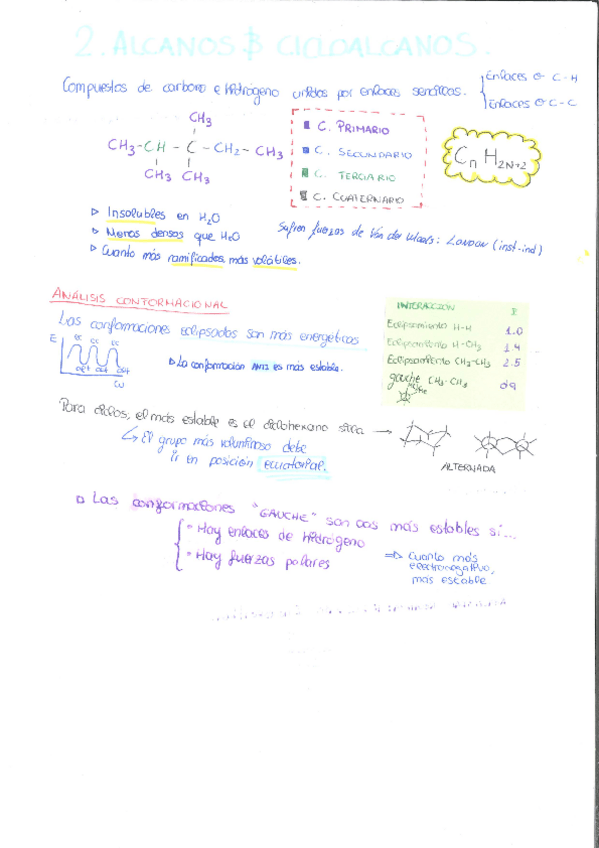 2. ALCANOS & CICLOALCANOS.
Compuestos de carbono e hidrógeno unidos por enlaces sencillos. { Enlaces σ C-H
Enlaces σ C-C
CH₃
CH₃-CH-C-CH₂-CH₃
CH₃ CH₃
C. PRIMARIO
C. SECUNDARIO
C. TERCIARIO
C. CUATERNARIO
CnH2N+2
▷ Insolubles en H₂O
▷ Menos densos que H₂O
▷ Cuanto más ramificados, más volátiles.
Sufren fuerzas de Van der Waals: London (inst-ind)
ANÁLISIS CONFORMACIONAL
Las conformaciones eclipsadas son más energéticas
E
EC EC EC
ω
▷ La conformación ANTI es más estable.
INTERACCIÓN E
Eclipsamiento H-H 1.0
Eclipsamiento H-CH₃ 1.4
Eclipsamiento CH₃-CH₃ 2.5
gauche CH₃-CH₃ 0.9
Para ciclos, el más estable es el ciclohexano silla →
↳ El grupo más voluminoso debe
ir en posición ECUATORIAL.
ALTERNADA
▷ Las conformaciones "GAUCHE" son las más estables si...
• Hay enlaces de hidrógeno
• Hay fuerzas polares
⇒ Cuanto más
electronegativo,
más estable